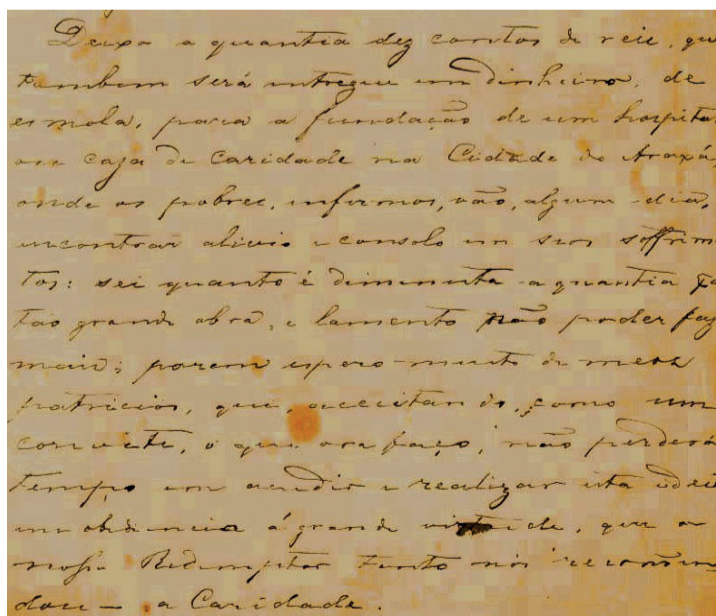 Deixo a quantia dez contos de reis, qu
tambem será entregue em dinheiro, de
esmola, para a fundação de um hospita
ou caza de Caridade na Cidade do Araxá,
onde os pobres, enfermos, vão, algum dia,
encontrar alivio e consolo em seos soffrim
tos: sei quanto é diminuta a quantia pa
tão grande obra, e lamento não poder faz
mais; porem espero muito de meos
patricios, que, acceitando, como um
convite, o que ora faço, não perderá
tempo em acudir e realizar esta idei
em obdiencia á grande virtude, que o
nosso Redemptor tanto nos recommen
dou - a Caridade.